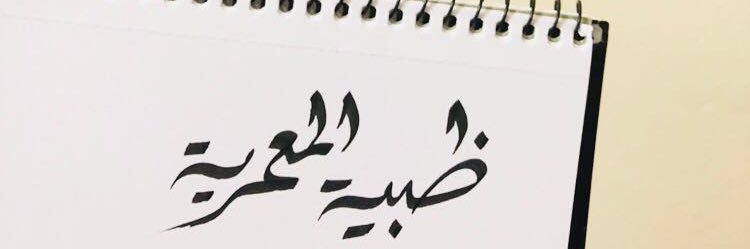 ظبية المعمرية